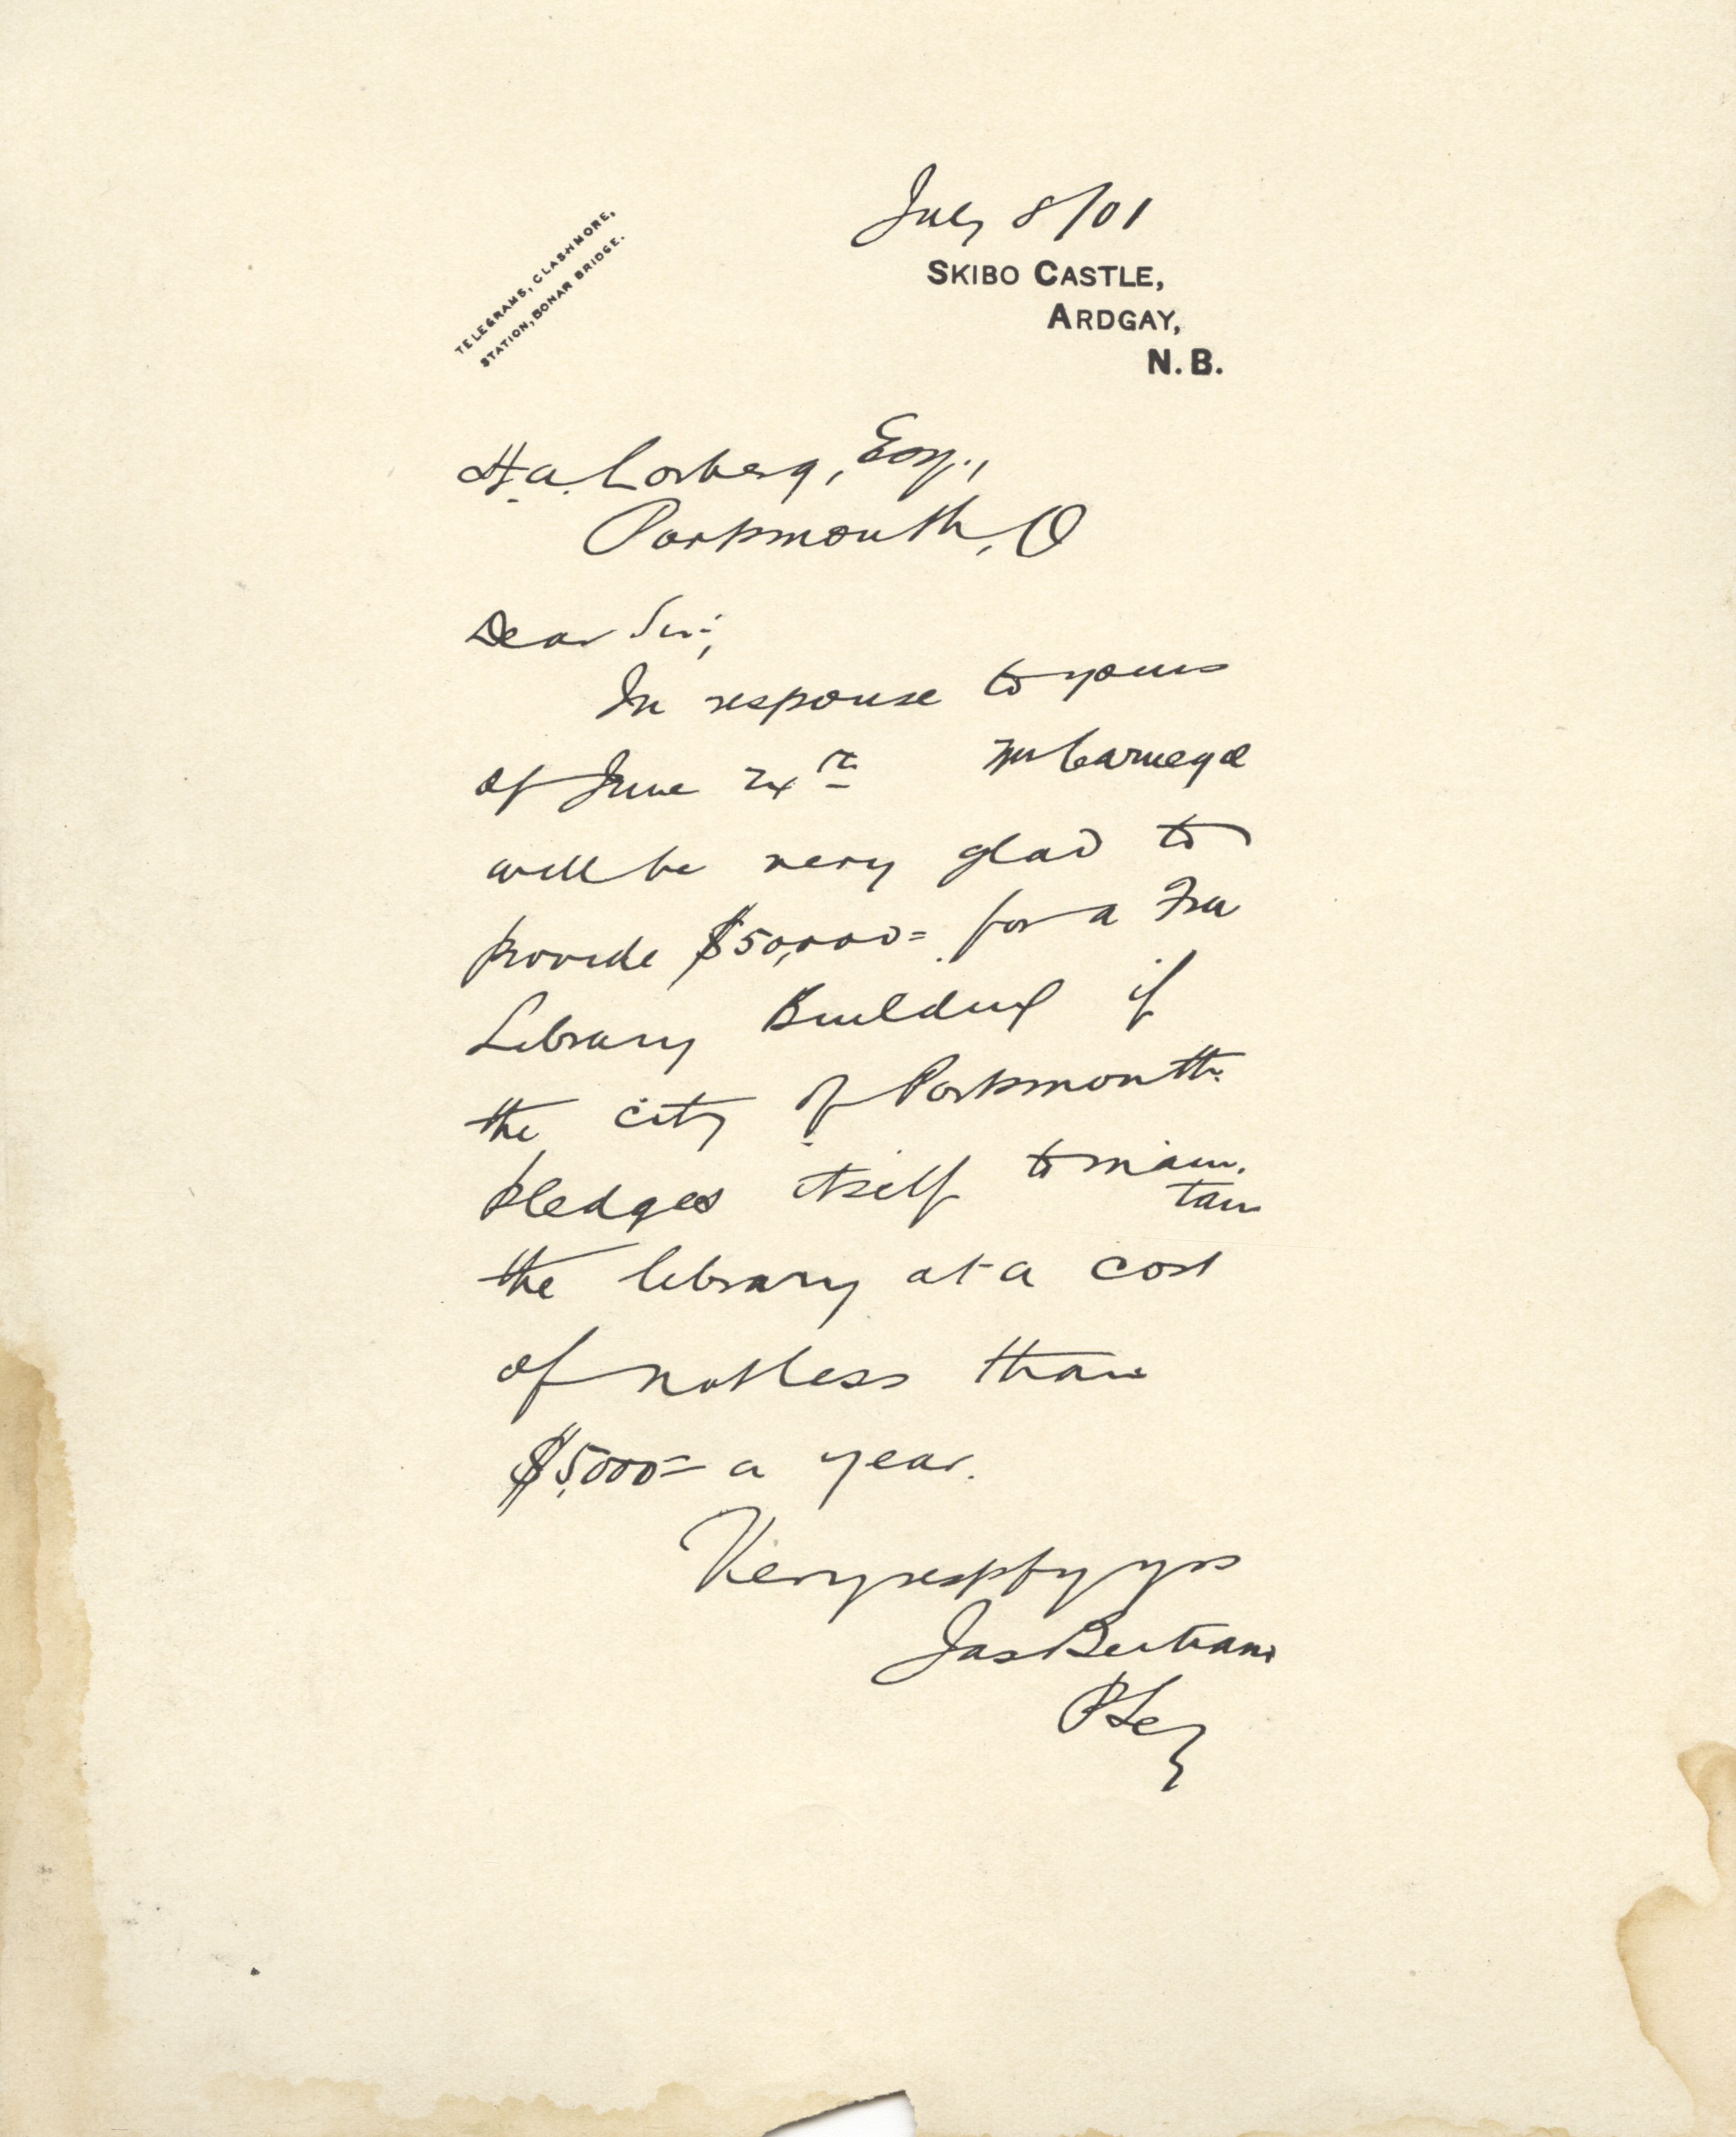 July 8/01
TELEGRAMS, CLASHMORE,
STATION, BONAR BRIDGE.
SKIBO CASTLE,
ARDGAY,
N. B.
H. A. Lorberg, Esq.,
Portsmouth, O
Dear Sir:,
In response to yours
of June 24th Mr Carnegie
will be very glad to
provide $50,000= for a Free
Library Building if
the city of Portsmouth
pledges itself to main-
tain
the library at a cost
of not less than
$5,000= a year.
Very respfy yrs
Jas Bertram
P Secy